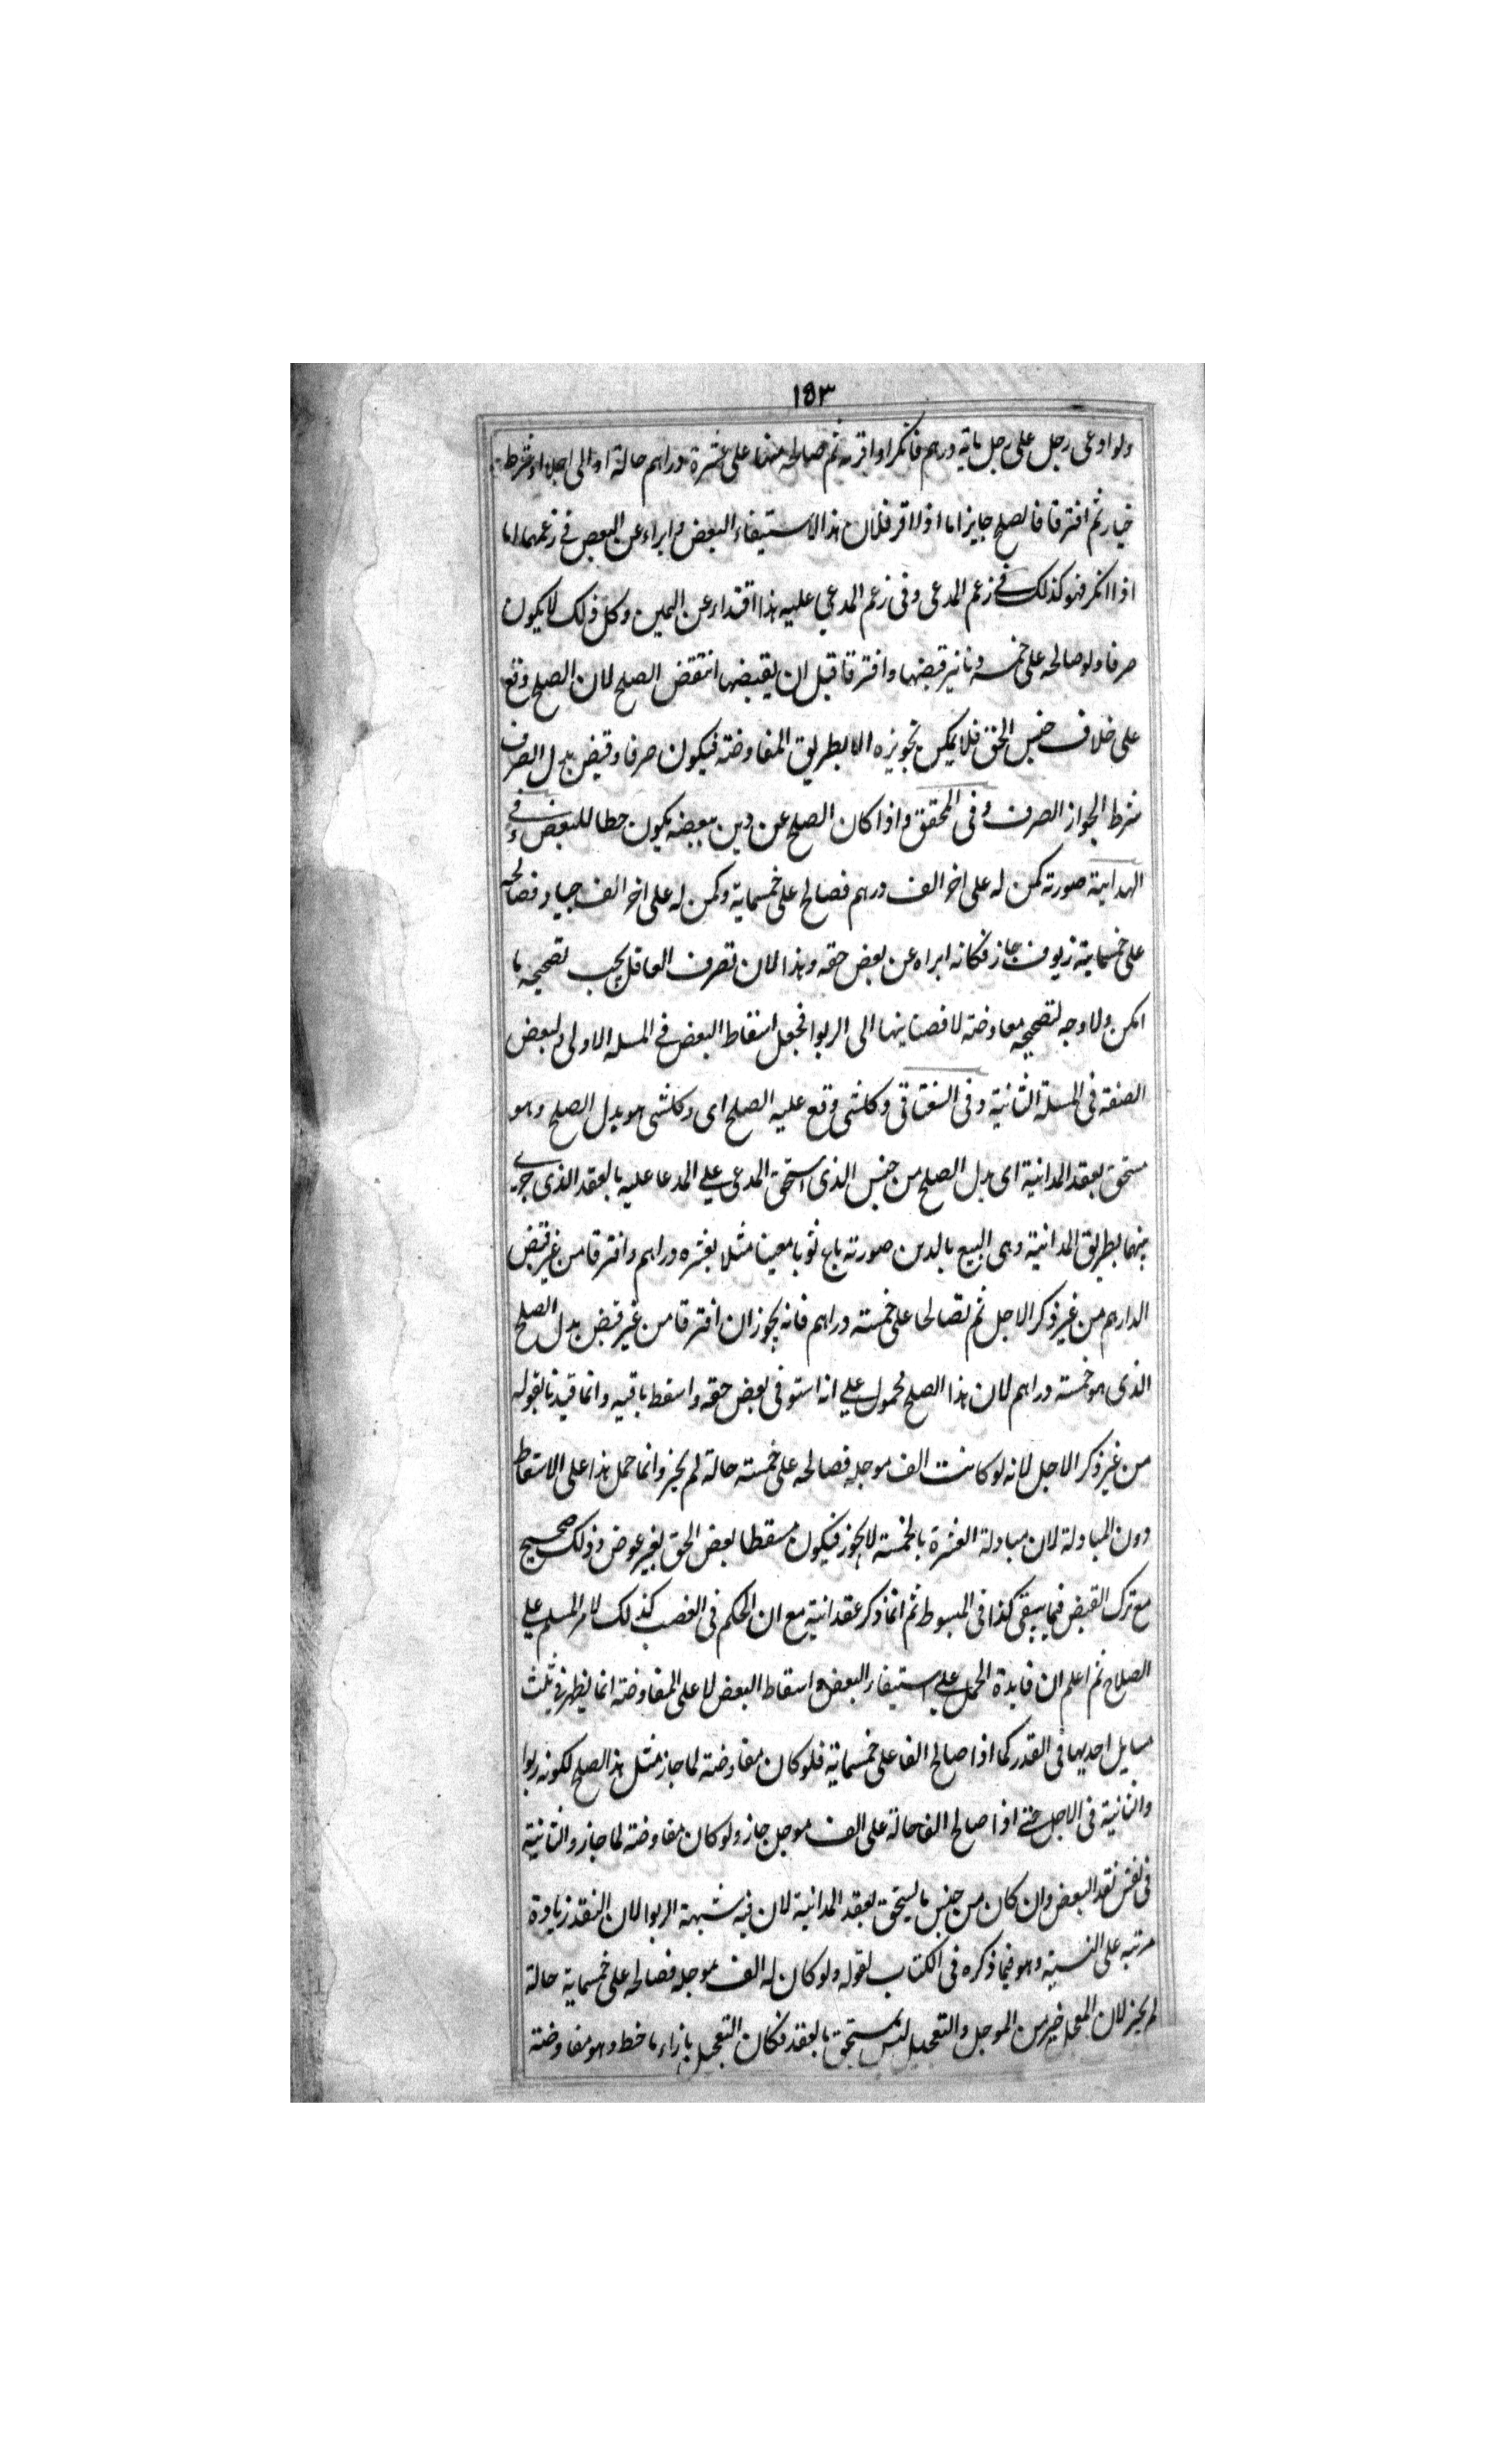 ١٥٣
ولو ادعى رجل على رجل ماية درهم فانكر او اقر به ثم صالحه منها على عشرة دراهم حالة او الى اجل او شرط
خيار ثم افترقا فالصلح جايز اما اذا اقر فلان هذا الاستيفاء البعض و ابراء عن البعض في زعمهما اما
اذا انكر فهو كذلك في زعم المدعى وفى زعم المدعي عليه هذا افتداء عن اليمين وكل ذلك لا يكون
صرفا ولو صالحه على خمسه دنانير قبضها وافترقا قبل ان يقبضها انتقض الصلح لان الصلح وقع
على خلاف جنس الحق فلا يمكن تجويزه الا بطريق المعاوضته فيكون صرفا وقبض بدل الصرف
شرط الجواز الصرف وفى المحقق واذا كان الصلح عن دين ببعضه يكون حطا للبعض في
الهداية صورته كمن له على اخر الف درهم فصالح على خمسماية وكمن له على اخر الف جياد فصالحه
على خمسماية زيوف جاز فكانه ابراه عن بعض حقه وهذا لان تصرف العاقل يجب تصحيحه ما
امكن ولا وجه لتصحيحه معاوضته لافضائها الى الربوا فجعل اسقاط البعض في المسلة الاولى ولبعض
الصفة فى المسلة الثانية وفى السغناقى وكلشى وقع عليه الصلح اى وكلشى هو بدل الصلح وهو
مستحق بعقد المداينية اى بدل الصلح من جنس الذى استحق المدعى علي المدعا عليه بالعقد الذى جرى
بينهما بطريق المداينية وهى البيع بالدين صورته باع ثوبا معينا مثلا بعشره دراهم وافترقا من غير قبض
الدارهم من غير ذكر الاجل ثم تصالحا على خمسته دراهم فانه يجوز ان افترقا من غير قبض بدل الصلح
الذى هو خمسته دراهم لان هذا الصلح محمول علي انه استوفى بعض حقه واسقط باقيه وانما قيدنا بقوله
من غير ذكر الاجل لانه لو كانت الف موجله فصالحه على خمسته حالة لم يجز وانما حمل هذا على الاسقاط
دون المبادلة لان مبادلة العشرة بالخمسته لا يجوز فيكون مسقطا بعض الحق بغير عوض وذلك صحيح
مع ترك القبض فيما يبقى كذا فى المبسوط ثم انما ذكر عقد انية مع ان الحكم فى الغصب كذلك لامر المسلم علي
الصلاح ثم اعلم ان فايدة الحمل علي استيفاء البعض و اسقاط البعض لا على المعاوضته انما يظهر في ثلث
مسايل احديها فى القدر كما اذا صالح الفا على خمسماية فلو كان معاوضته لما جاز مثل هذا الصلح لكونه ربوا
والثانية فى الاجل حتى اذا صالح الف حالة على الف موجل جاز ولو كان معاوضته لما جاز والثانية
فى نفس نقد البعض وان كان من جنس ما يستحق بعقد المداينية لان فيه شبهة الربوا لان النقد زيادة
مرتبه على النسية وهو فيما ذكره فى الكتاب بقوله ولو كان له الف موجله فصالحه على خمسماية حالة
لم يجز لان المعجل خير من الموجل والتعجيل ليس بمستحق بالعقد فكان التعجيل بازاء ما حط وهو معاوضته